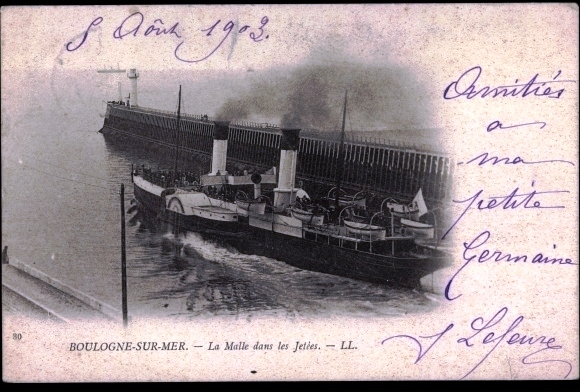 8 Août 1903.
Amitiés
a
ma
petite
Germaine
J Lefeuvre
80 BOULOGNE-SUR-MER. – La Malle dans les Jetées. – LL.